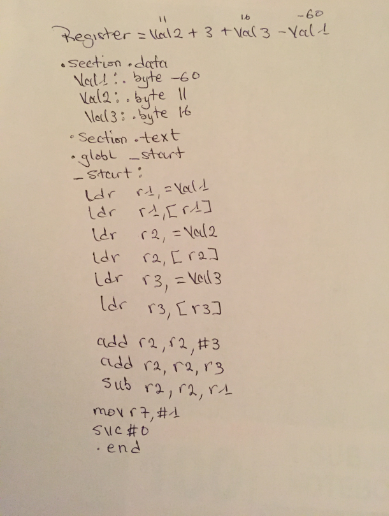 11 16 -60
Register = Val2 + 3 + Val3 - Val1
.section .data
Val1: .byte -60
Val2: .byte 11
Val3: .byte 16
.section .text
.globl _start
_start:
ldr r1, =Val1
ldr r1, [r1]
ldr r2, =Val2
ldr r2, [r2]
ldr r3, =Val3
ldr r3, [r3]
add r2, r2, #3
add r2, r2, r3
sub r2, r2, r1
mov r7, #1
svc #0
.end